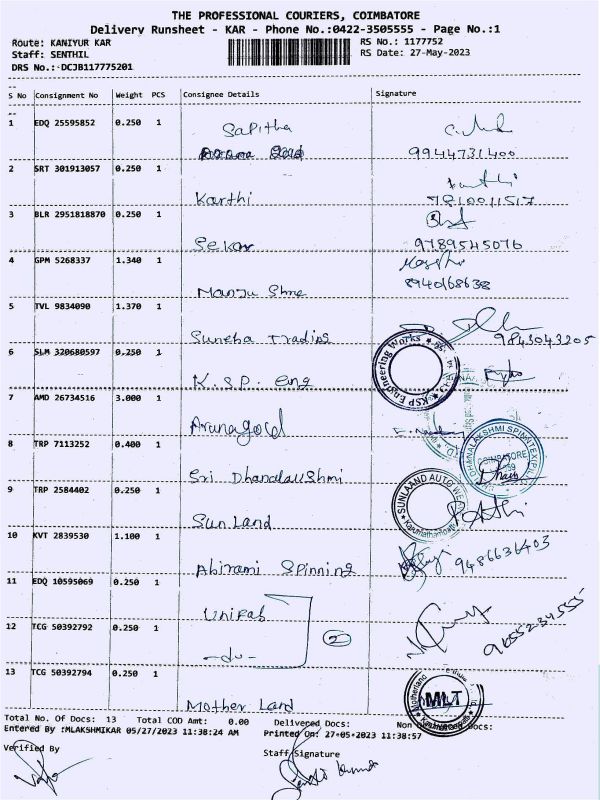 THE PROFESSIONAL COURIERS, COIMBATORE
Delivery Runsheet - KAR - Phone No.:0422-3505555 - Page No.:1
Route: KANIYUR KAR
RS No.: 1177752
Staff: SENTHIL
RS Date: 27-May-2023
DRS No.:-DCJB117775201
S No Consignment No Weight PCS Consignee Details Signature
1 EDQ 25595852 0.250 1 Sapitha
9944731400
2 SRT 301913057 0.250 1 Karthi 7810011517
3 BLR 2951818870 0.250 1 Sekar 9789545076
4 GPM 5268337 1.340 1 Manju Shree 8940168638
5 TVL 9834090 1.370 1 Suneha Trading 9843043205
6 SLM 320680597 0.250 1 K.S.P. eng KSP Engineering Works
7 AMD 26734516 3.000 1 Arunagold
8 TRP 7113252 0.400 1 Sri Dhanalakshmi COIMBATORE
9 TRP 2584402 0.250 1 Sun Land SUNLAAND AUTO
10 KVT 2839530 1.100 1 Abirami Spinning 9486636403
11 EDQ 10595069 0.250 1 Unifab
12 TCG 50392792 0.250 1 -do- 2
13 TCG 50392794 0.250 1 Mother Land Motherland MLT
Total No. Of Docs: 13 Total COD Amt: 0.00 Delivered Docs:
Entered By :MLAKSHMIKAR 05/27/2023 11:38:24 AM Printed On: 27-05-2023 11:38:57
Verified By
Staff Signature